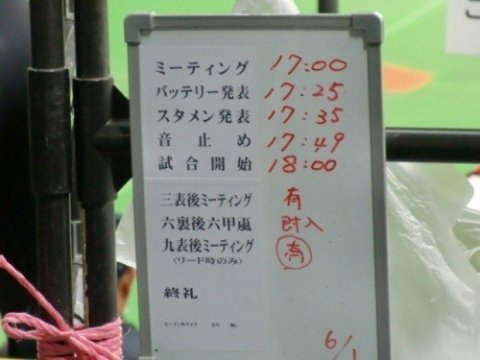 ミーティング 17:00
バッテリー発表 17:25
スタメン発表 17:35
音止め 17:49
試合開始 18:00
三表後ミーティング 有
六裏後六甲颪
九表後ミーティング 高
(リード時のみ)
終礼
6/1